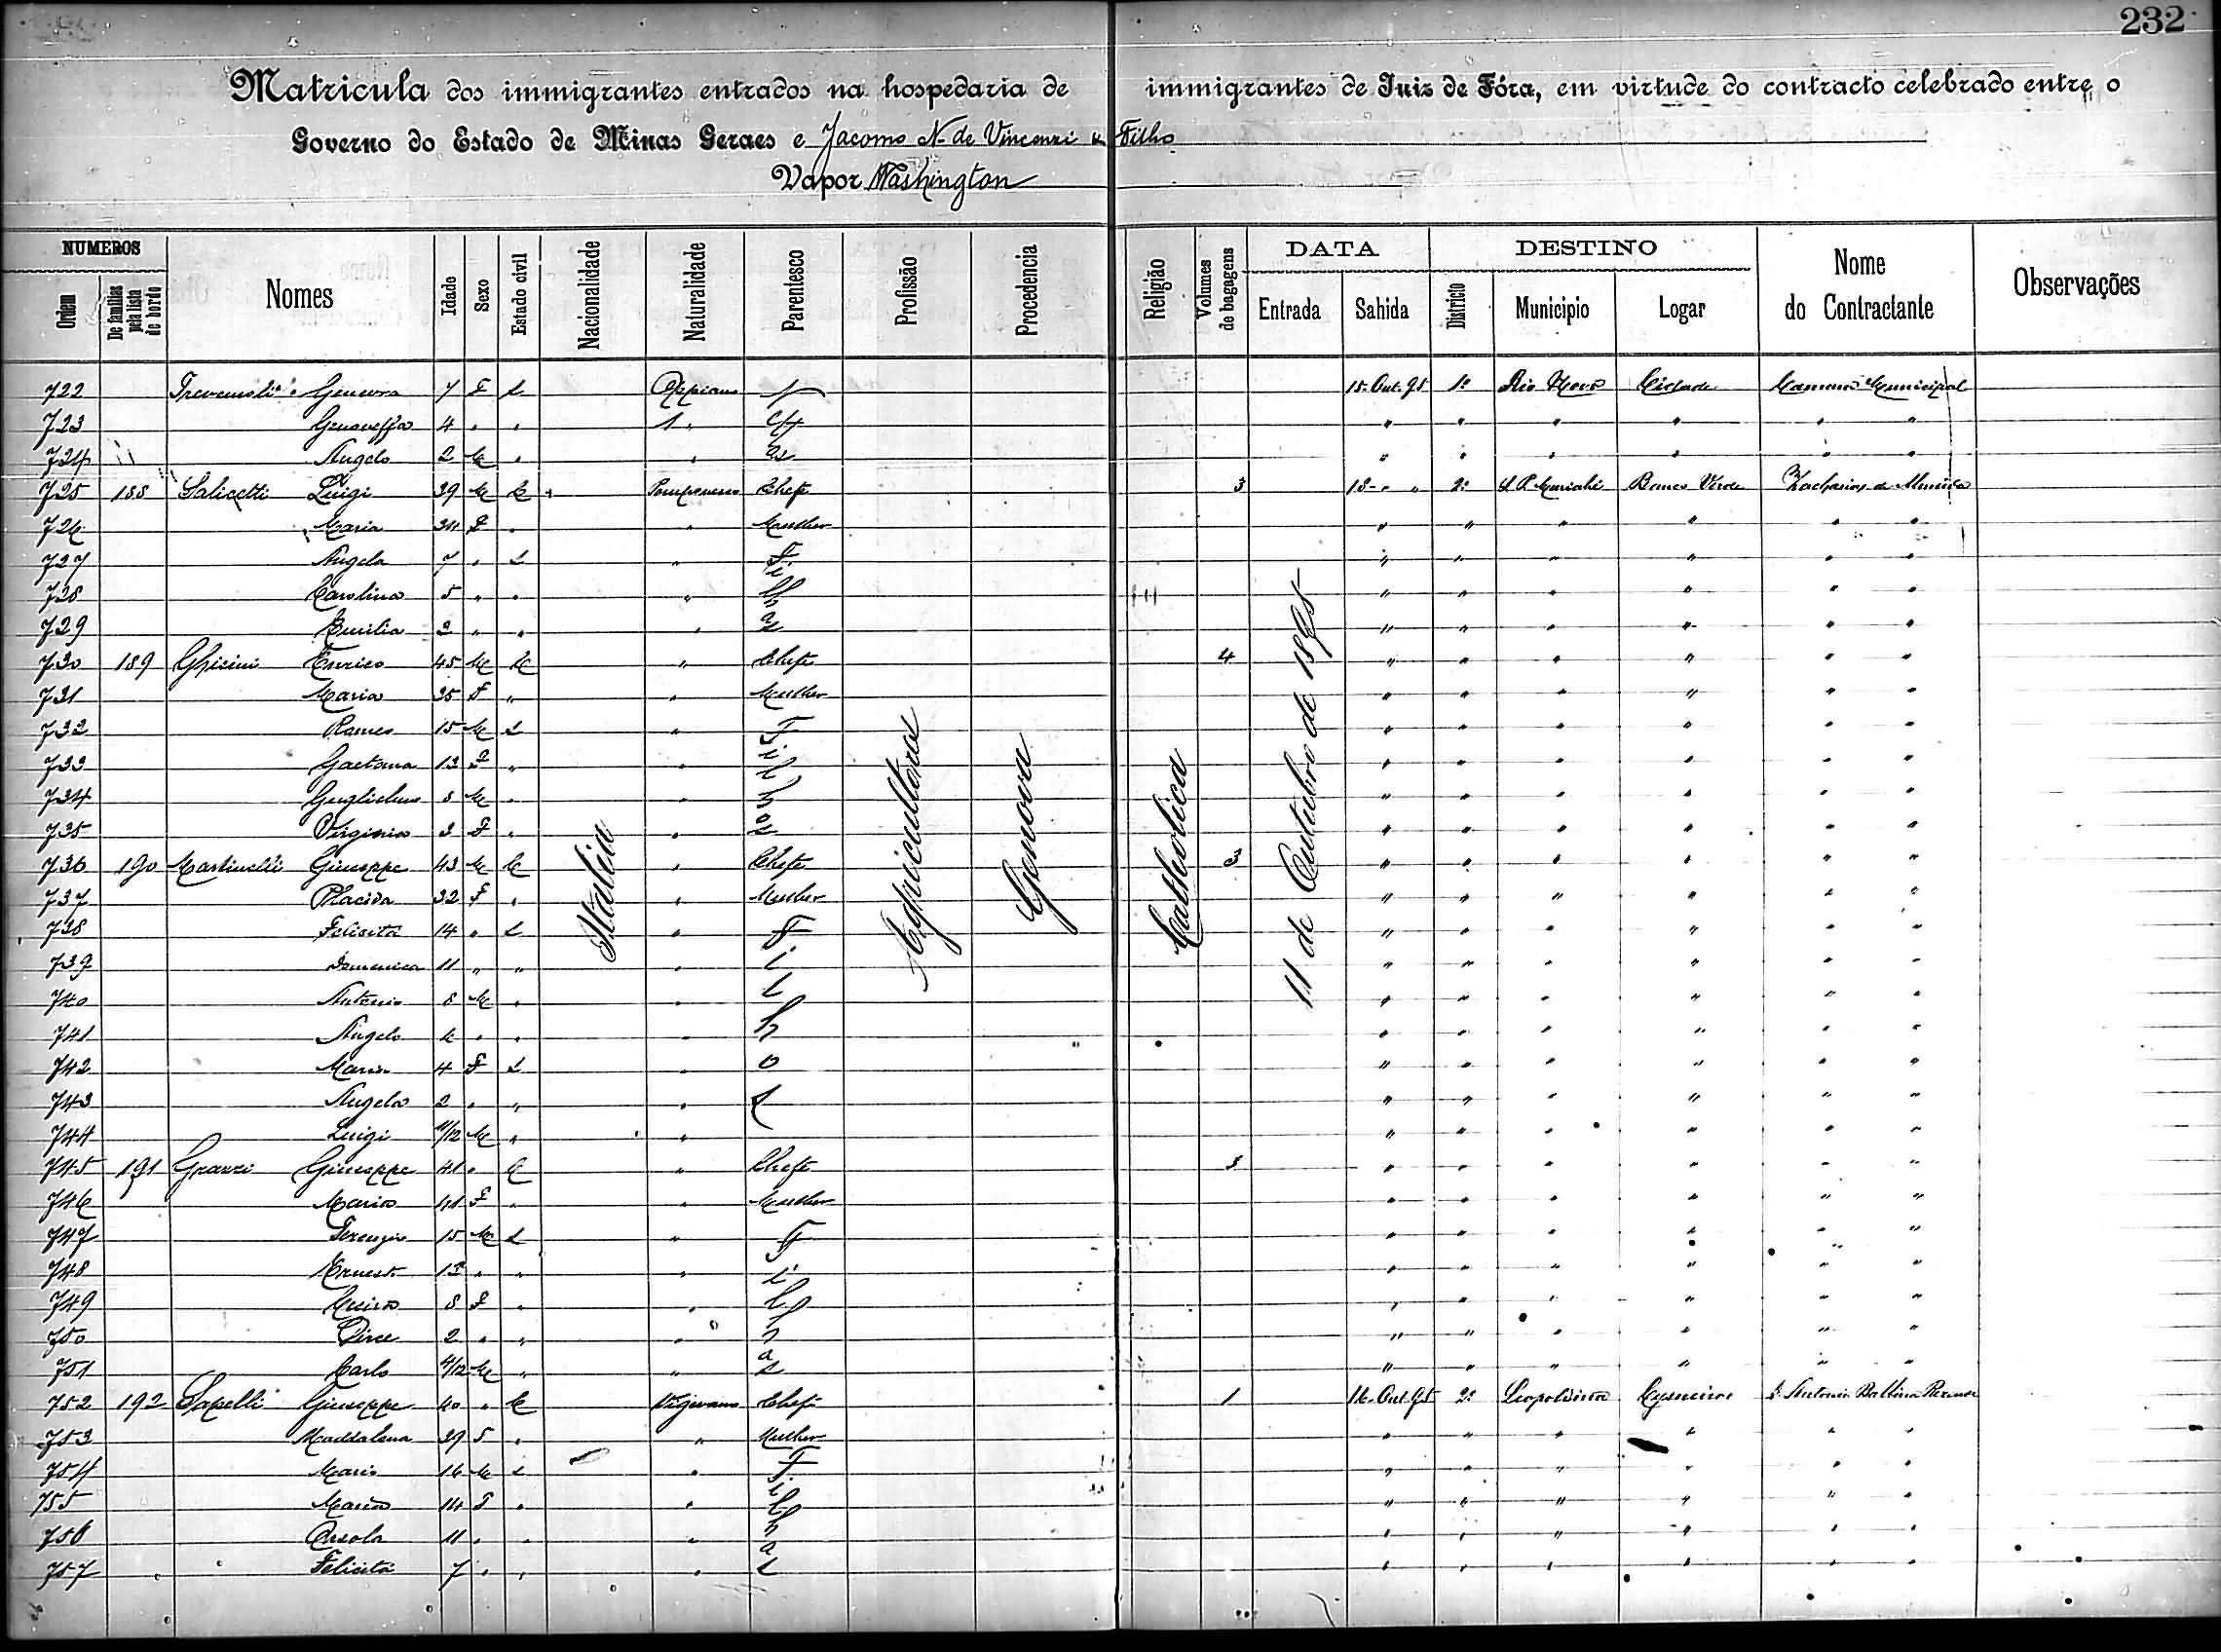 232
Matricula dos immigrantes entrados na hospedaria de immigrantes de Juiz de Fóra, em virtude do contracto celebrado entre o
Governo do Estado de Minas Geraes e Jacomo N. de Vincenzi & Filho
Vapor Washington
NUMEROS Ordem De familias pela lista de bordo Nomes Idade Sexo Estado civil Nacionalidade Naturalidade Parentesco Profissão Procedencia Religião Volumes de bagagens DATA Entrada Sahida DESTINO Districto Municipio Logar Nome do Contractante Observações
Italia Agricultora Genova Catholica 11 de Outubro de 1895
722 Ginevra 7 F S Appiano 15. Out. 95 1º Rio Novo Cidade Camara Municipal
723 Genoveffa 4 " " " " " " " " " "
724 Angelo 2 M " " " " " " " "
725 188 Salicetti Luigi 39 M C Chefe 3 18 " " 2º S. P. Muriahé Banco Verde
726 Maria F " " Mulher " " " " " "
727 Angela 7 " S " " " " " " "
728 Carolina 5 " " " " " " " " "
729 Emilia 2 " " " " " " " " "
730 189 Ghicini Enrico 45 M C " Chefe 4 " " " " " "
731 Maria 35 F " " Mulher " " " " " "
732 15 M S " " " " " " "
733 Gaetana 13 F " " " " " " " "
734 Guglielmo 8 M " " " " " " " "
735 Virginia 3 F " " " " " " " "
736 190 Martinelli Giuseppe 43 M C " Chefe 3 " " " " " "
737 Placida 32 F " " Mulher " " " " " "
738 Felicita 14 " S " " " " " " "
739 Domenica 11 " " " " " " " " "
740 Antonio 8 M " " " " " " " "
741 Angelo 6 " " " " " " " " "
742 Maria 4 F S " " " " " " "
743 Angela 2 " " " " " " " " "
744 Luigi 11/12 M " " " " " " " "
745 191 Grazzi Giuseppe 41 " C " Chefe 5 " " " " " "
746 Maria 41 F " " Mulher " " " " " "
747 Terenzio 15 M S " " " " " " "
748 Ernesto 13 " " " " " " " " "
749 8 F " " " " " " " "
750 Dirce 2 " " " " " " " " "
751 Carlo M " " " " " " " "
752 192 Sapelli Giuseppe 40 " C Vigevano Chefe 1 16. Out. 95 2º Leopoldina Cysneiros
753 Maddalena 39 F " " Mulher " " " " " "
754 Mario 16 M S " " " " " " "
755 Maria 14 F " " " " " " " "
756 Orsola 11 " " " " " " " " "
757 Felicita 7 " " " " " " " " "
Filhos